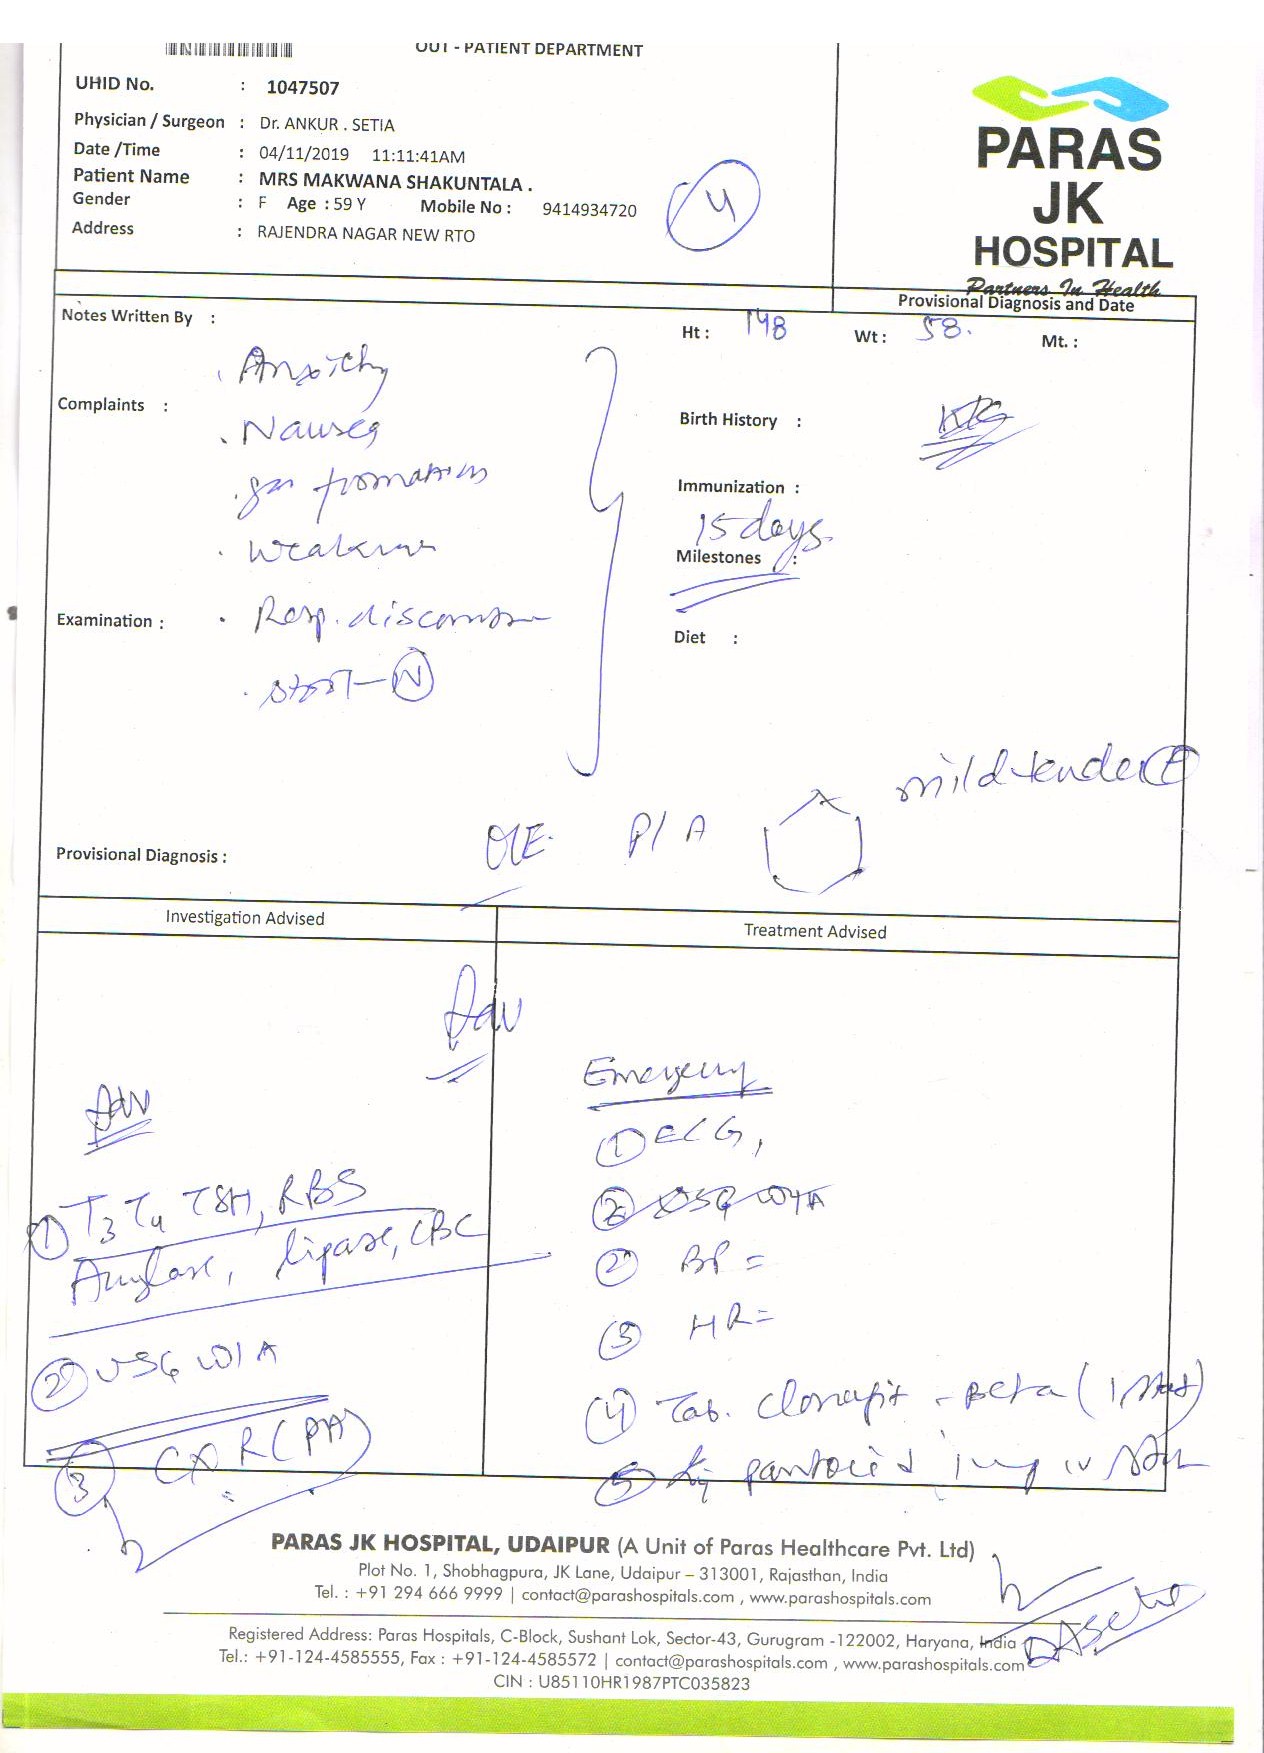 OUT - PATIENT DEPARTMENT
UHID No. : 1047507
Physician / Surgeon : Dr. ANKUR . SETIA
Date /Time : 04/11/2019 11:11:41AM
Patient Name : MRS MAKWANA SHAKUNTALA .
Gender : F Age : 59 Y Mobile No : 9414934720
Address : RAJENDRA NAGAR NEW RTO
4
PARAS
JK
HOSPITAL
Partners In Health
Provisional Diagnosis and Date
Notes Written By :
Ht : 148 Wt : 58. Mt. :
Complaints :
. Nausea
. gas formation
. weakness
Examination : . Resp. discomfort
. stool - N
Birth History :
Immunization :
15 days
Milestones :
Diet :
Provisional Diagnosis :
O/E P/A mild tender +
Investigation Advised
Treatment Advised
Adv
Adv
① T3 T4 TSH, RBS
Amylase, lipase, CBC
② USG W/A
③ CXR (PA)
Emergency
① ECG,
② USG W/A
② BP =
③ HR =
④ Tab. - Beta (1 stat)
⑤ Inj iv stat
PARAS JK HOSPITAL, UDAIPUR (A Unit of Paras Healthcare Pvt. Ltd)
Plot No. 1, Shobhagpura, JK Lane, Udaipur – 313001, Rajasthan, India
Tel. : +91 294 666 9999 | contact@parashospitals.com , www.parashospitals.com
Registered Address: Paras Hospitals, C-Block, Sushant Lok, Sector-43, Gurugram -122002, Haryana, India
Tel.: +91-124-4585555, Fax : +91-124-4585572 | contact@parashospitals.com , www.parashospitals.com
CIN : U85110HR1987PTC035823